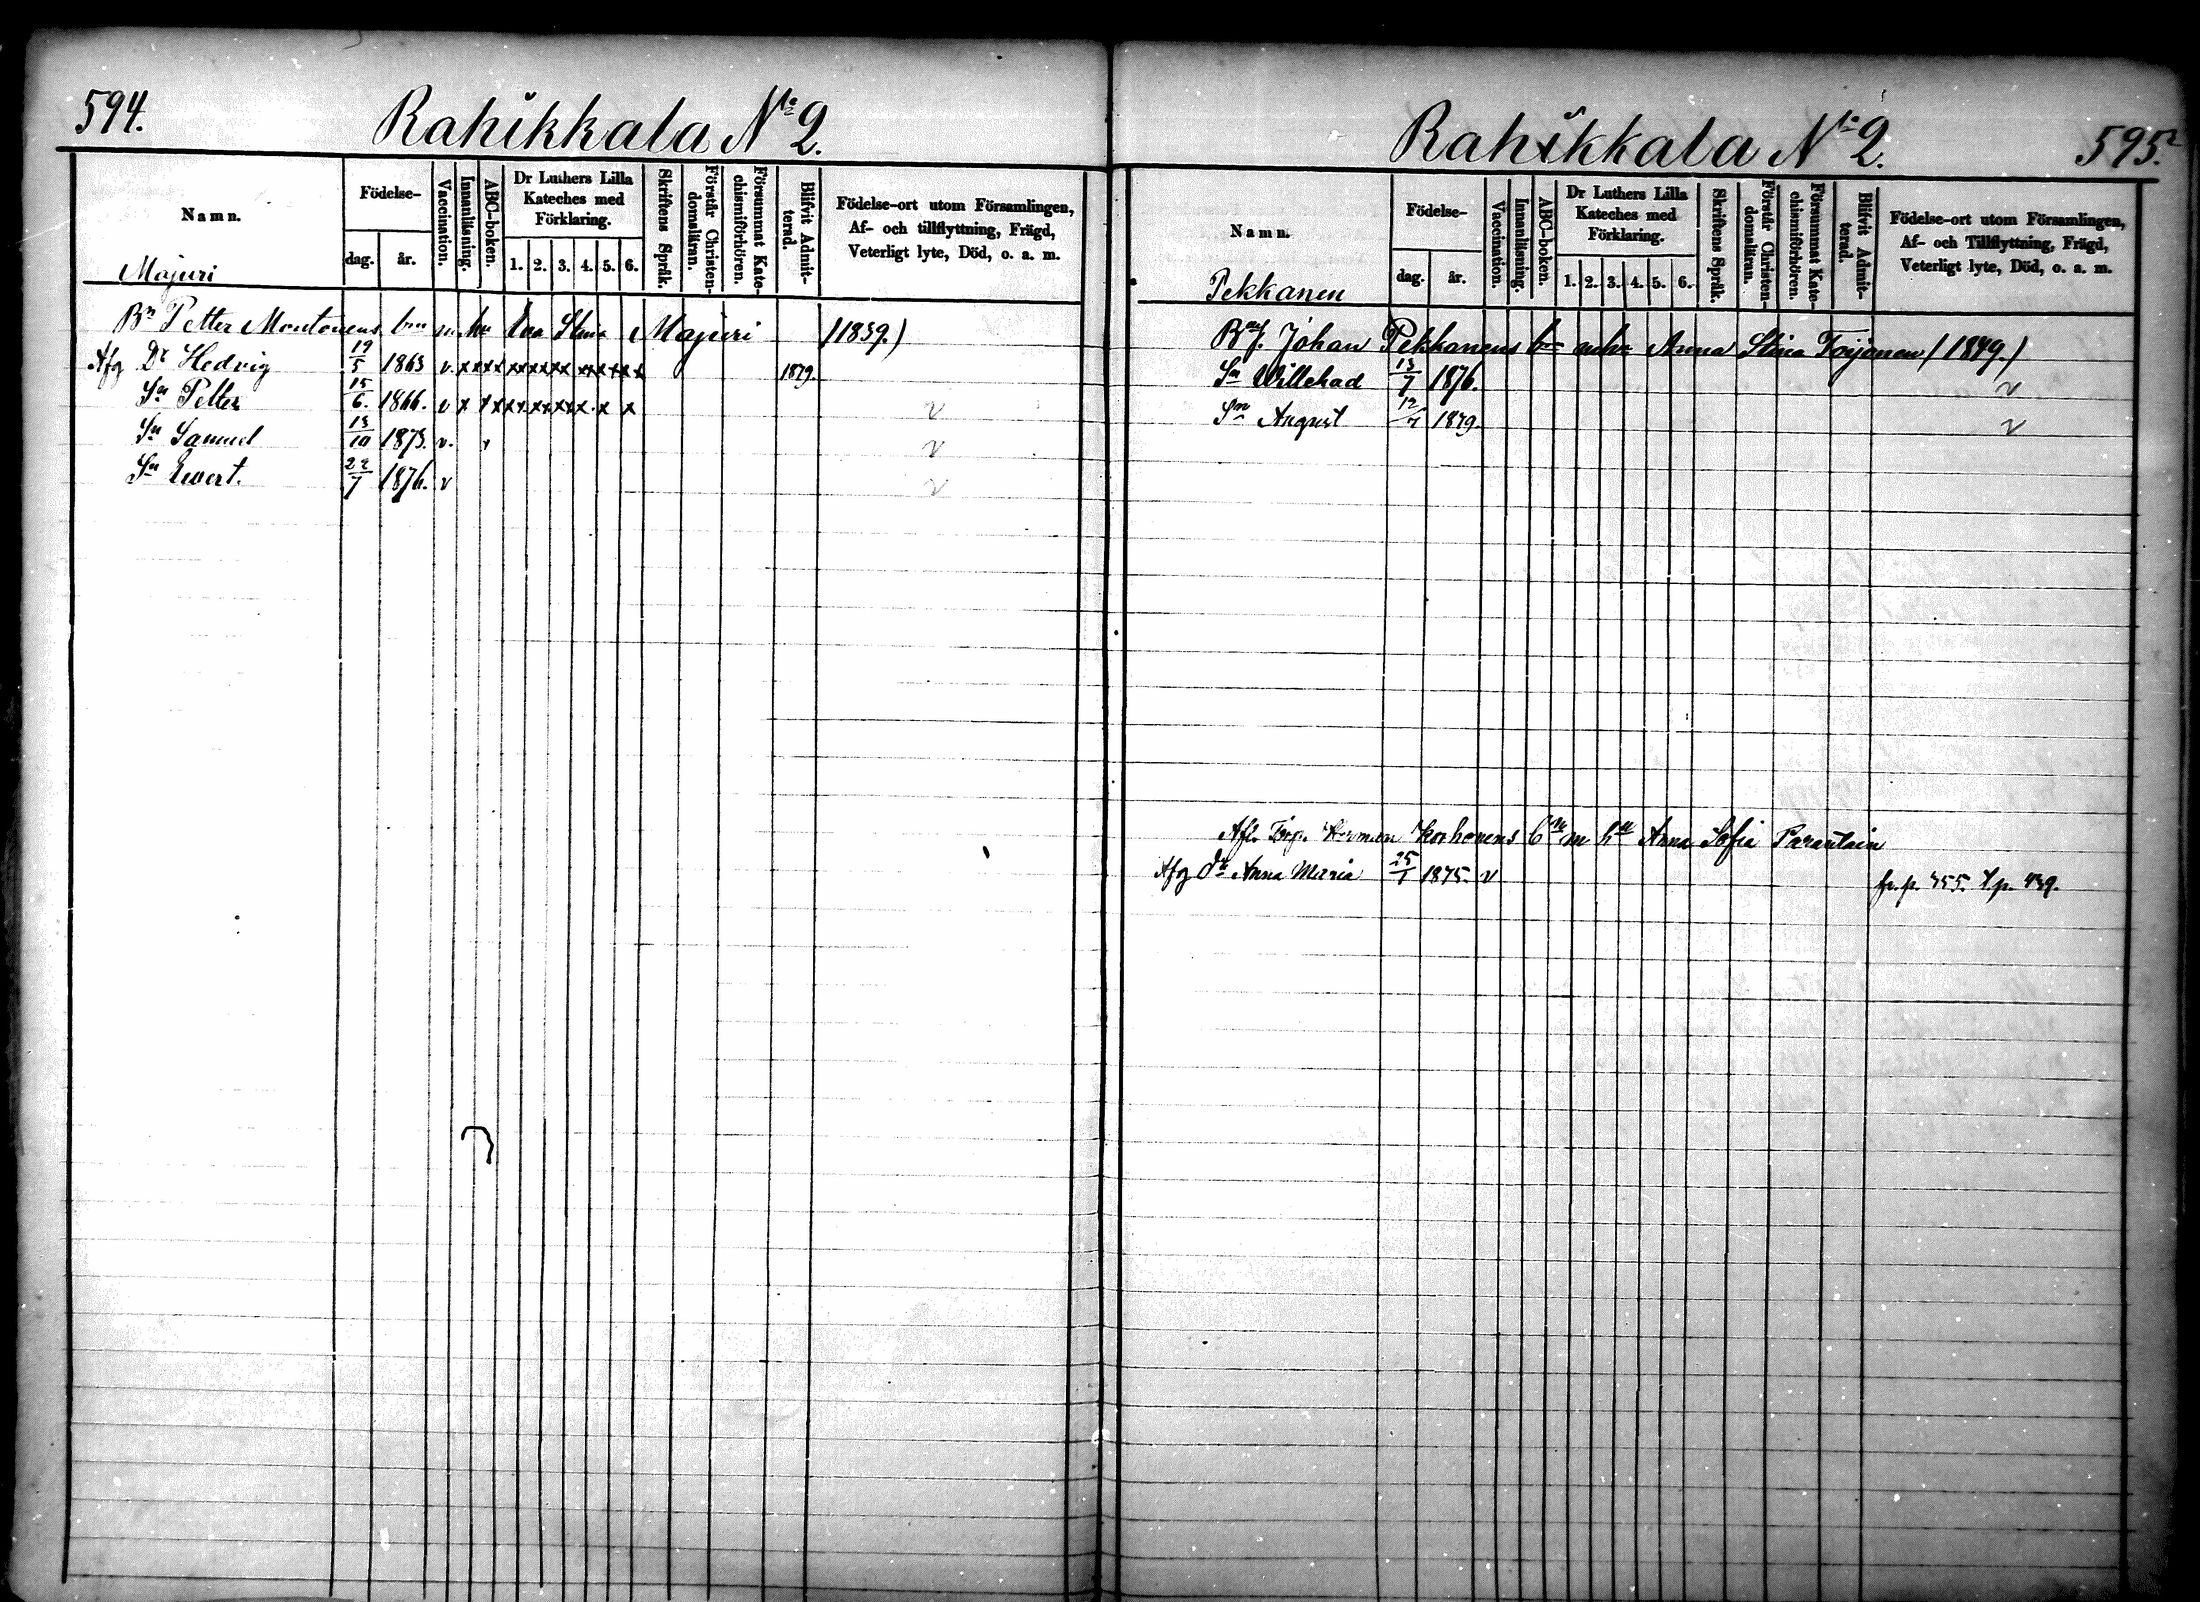 594.
Rahikkala No 2.
Namn.
Födelse-
dag. år.
Vaccination.
Innanläsning.
ABC-boken.
Dr Luthers Lilla Kateches med Förklaring.
1. 2. 3. 4. 5. 6.
Skriftens Språk.
Förstår Christendomsläran.
Försummat Katechismiförhören.
Blifvit Admitterad.
Födelse-ort utom Församlingen,
Af- och tillflyttning, Frägd,
Veterligt lyte, Död, o. a. m.
Majuri
Bn Petter Montonens bn m. hu Eva Stina Majuri (1839.)
Afg Dr Hedvig 19/5 1863 v. x x x x x x x x x x x x x x 1879.
Sn Petter 15/6. 1866. v x x x x x x x x x x x v
Sn Samuel 13/10 1873. v. v v
Sn Ewert. 22/7 1876. v v
Rahikkala No 2.
595.
Namn.
Födelse-
dag. år.
Vaccination.
Innanläsning.
ABC-boken.
Dr Luthers Lilla
Kateches med
Förklaring.
1. 2. 3. 4. 5. 6.
Skriftens Språk.
Förstår Christendomsläran.
Försummat Katechismiförhören.
Blifvit Admitterad.
Födelse-ort utom Församlingen,
Af- och Tillflyttning, Frägd,
Veterligt lyte, Död, o. a. m.
Pekkanen
Johan Pekkanens bn m hu Anna Stina Toijonen (1849.)
Sn Willehad 13/7 1876. v
Sn August 12/7 1879. v
Afl. Torp. Herman Korhonens bn m hu Anna Sofia Parantain
Afg dr Anna Maria 25/1 1875. v fr. p. 355. t. p. 439.